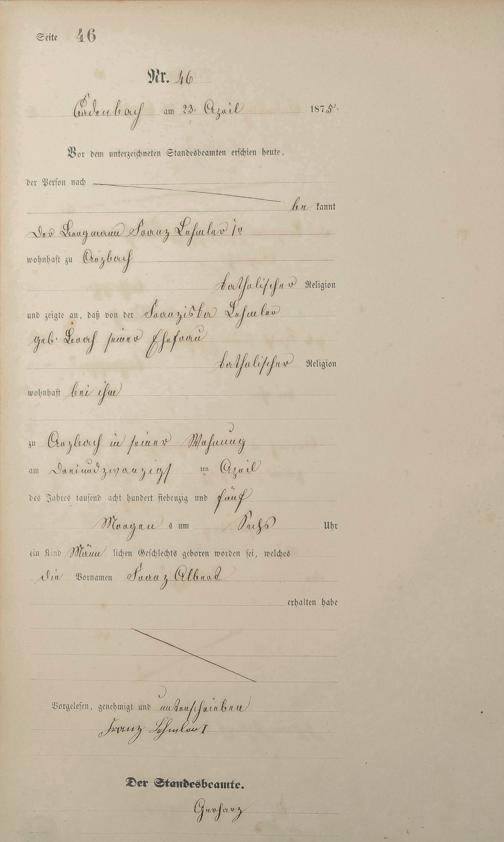 Seite 46
Nr. 46
Cadenbach am 23. April 1875.
Vor dem unterzeichneten Standesbeamten erschien heute,
der Person nach
be kannt
Der Bergmann Franz Lehmler
wohnhaft zu Arzbach
katholischer Religion
und zeigte an, daß von der Franziska Lehmler
geb. seiner Ehefrau
katholischer Religion
wohnhaft bei ihm
zu Arzbach in seiner Wohnung
am dreiundzwanzigst en April
des Jahres tausend acht hundert siebenzig und fünf
Morgen s um Sechs Uhr
ein Kind Männ lichen Geschlechts geboren worden sei, welches
die Vornamen Franz Albert
erhalten habe
Vorgelesen, genehmigt und unterschrieben
Franz Lehmler I
Der Standesbeamte.
Gerharz